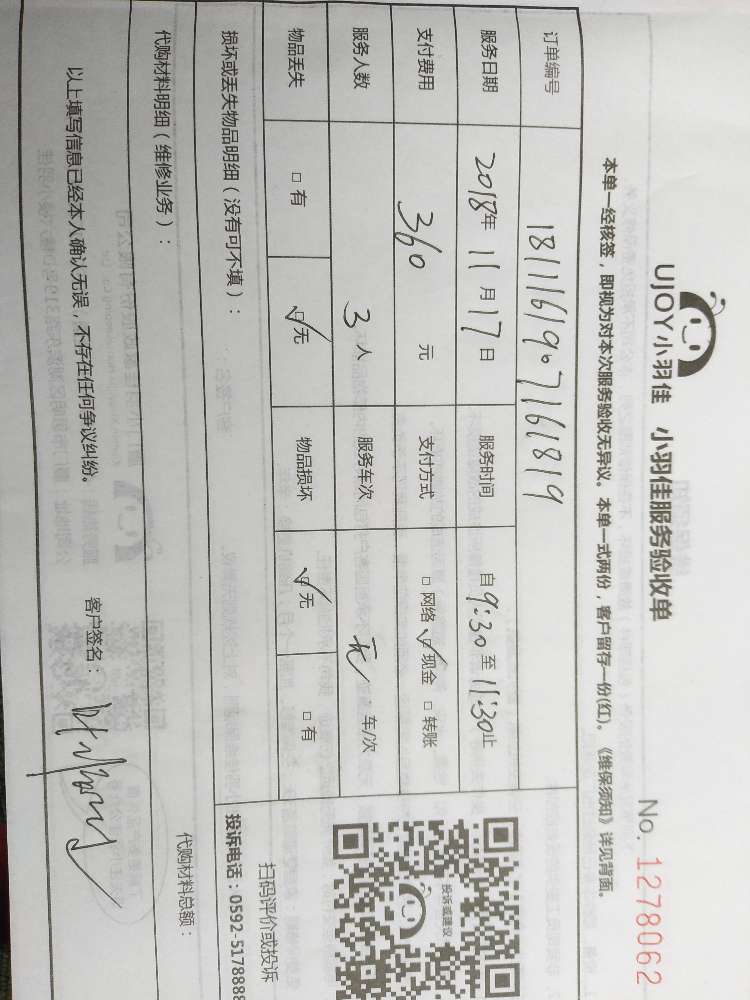 UJOY小羽佳 小羽佳服务验收单 No. 1278062
本单一经核签，即视为对本次服务验收无异议。本单一式两份，客户留存一份(红)。《维保须知》详见背面。
订单编号 1811161907161819
服务日期 2018年 11月 17日 服务时间 自 9:30 至 11:30止
支付费用 360 元 支付方式 □ 网络 ☑ 现金 □ 转账
服务人数 3 人 服务车次 无 车/次
物品丢失 □ 有 ☑ 无 物品损坏 ☑ 无 □ 有
投诉或建议
扫码评价或投诉
投诉电话：0592-5178888
损坏或丢失物品明细（没有可不填）：
代购材料明细（维修业务）： 代购材料总额：
以上填写信息已经本人确认无误，不存在任何争议纠纷。 客户签名：